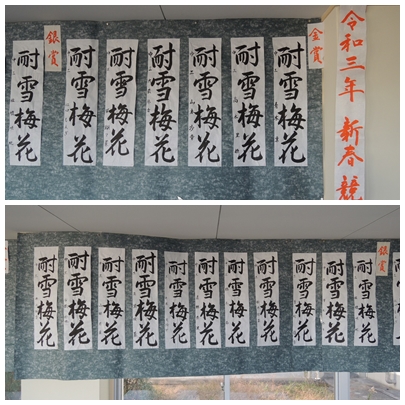 令和三年 新春競
金賞
耐雪梅花
耐雪梅花
耐雪梅花
耐雪梅花
耐雪梅花
耐雪梅花
銀賞
耐雪梅花
銀賞
耐雪梅花
耐雪梅花
耐雪梅花
耐雪梅花
耐雪梅花
耐雪梅花
耐雪梅花
耐雪梅花
耐雪梅花
耐雪梅花
耐雪梅花